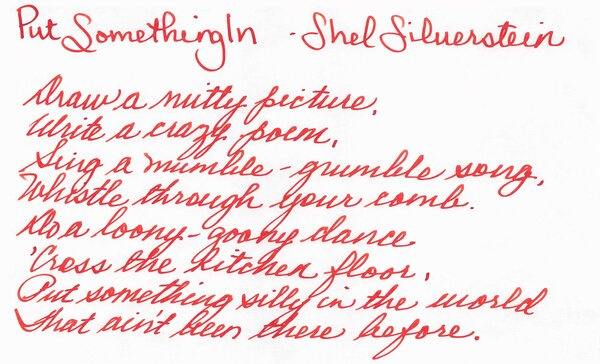 Put Something In - Shel Silverstein
Draw a nutty picture,
Write a crazy poem,
Sing a mumble-grumble song,
Whistle through your comb.
Do a loony-goony dance
'Cross the kitchen floor,
Put something silly in the world
That ain't been there before.